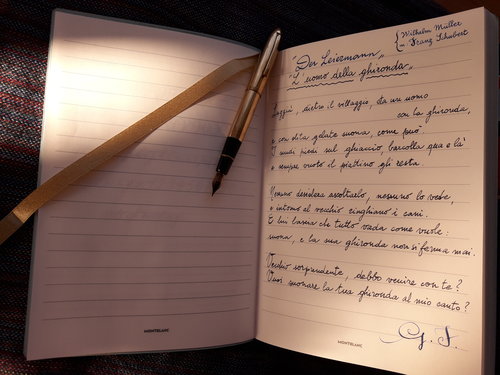 Der Leiermann,
L'uomo della ghironda.
Wilhelm Müller
Franz Schubert
Laggiù, dietro il villaggio, sta un uomo
con la ghironda,
con dita gelate suona, come può
A piedi nudi sul ghiaccio barcolla qua e là
e sempre vuoto il piattino gli resta.
Nessuno desidera ascoltarlo, nessuno lo vede
e intorno al vecchio ringhiano i cani.
E lui lascia che tutto vada come vuole:
suona, e la sua ghironda non si ferma mai.
Vecchio sorprendente, debbo venire con te?
Vuoi suonare la tua ghironda al mio canto?
G. S.
MONTBLANC
MONTBLANC